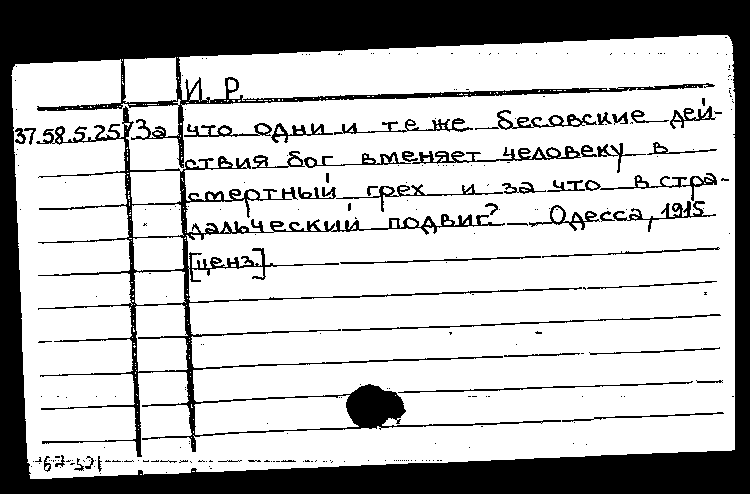 И. Р.
37.58.5.257 За что одни и те же бесовские дей-
ствия бог вменяет человеку в
смертный грех и за что в стра-
дальческий подвиг? Одесса, 1915
[ценз.].